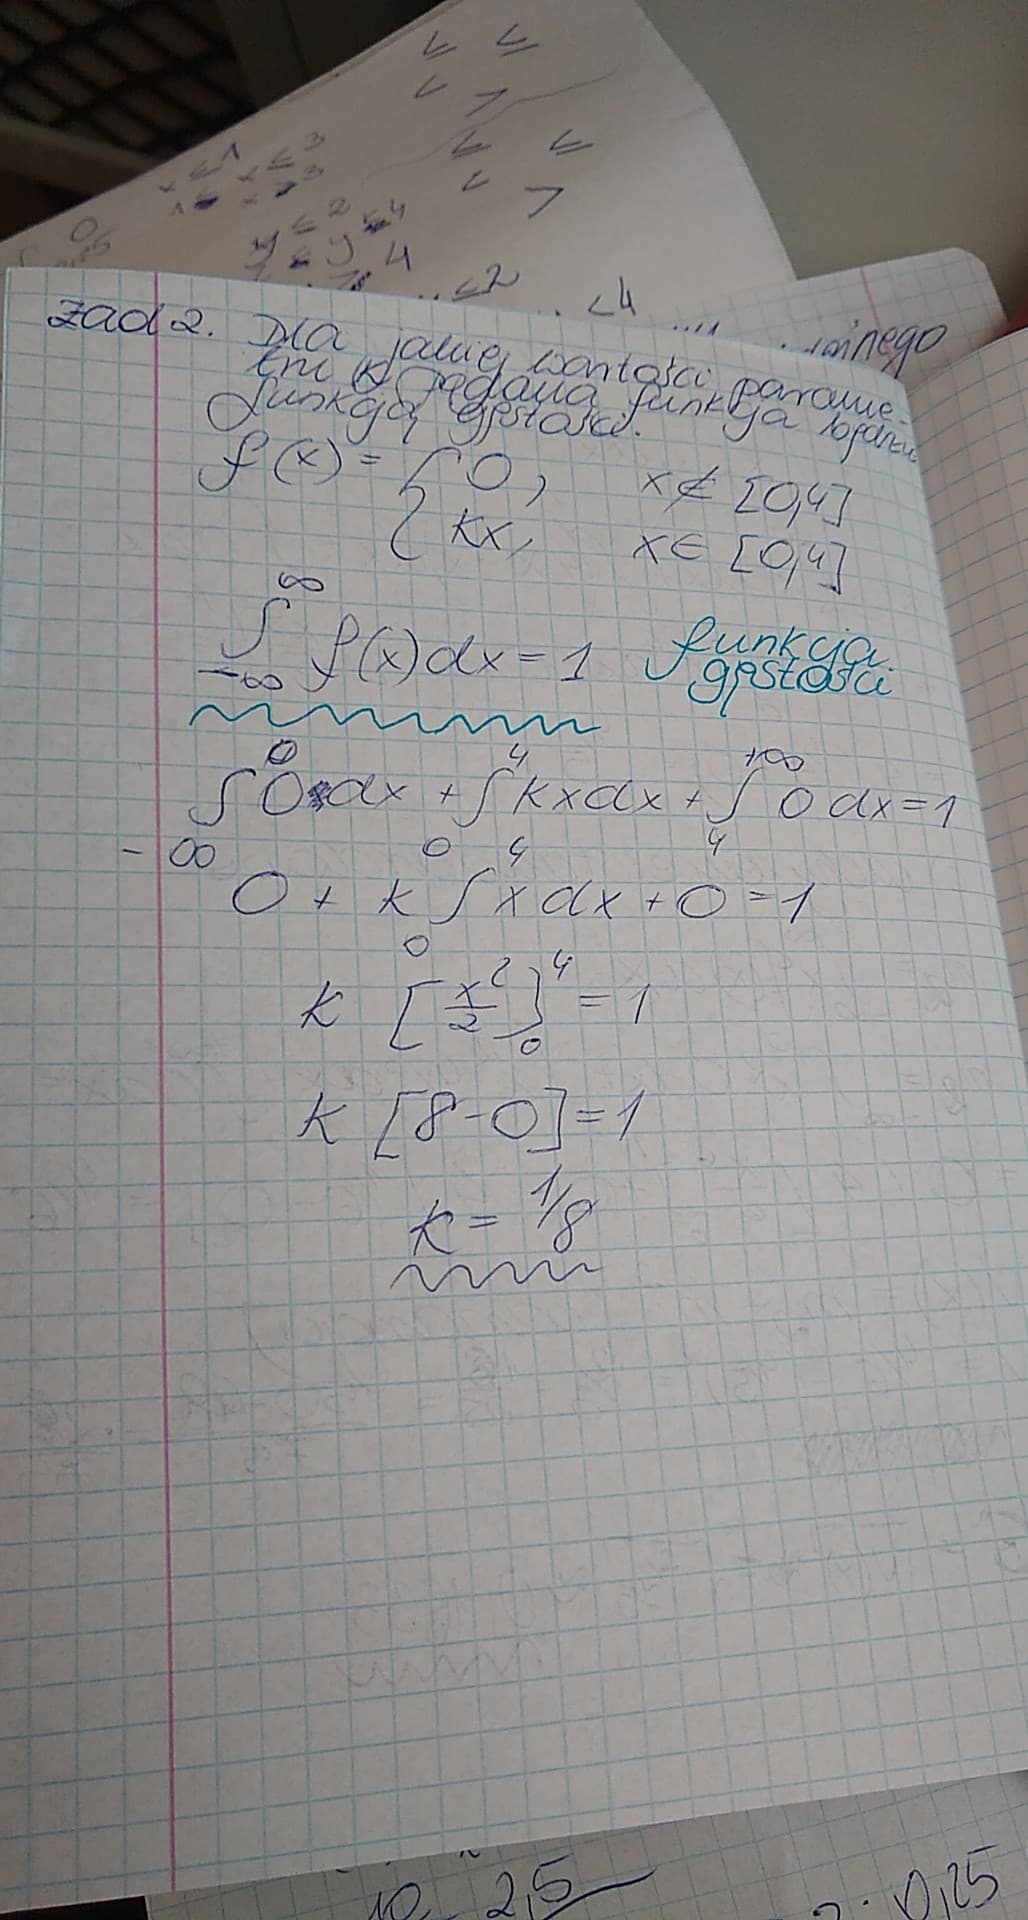 ≤ ≤
< >
x ≤ 1 x ≤ 3
≤ ≤
< >
y ≤ 2 ≤ 4
≤ y 4
≤2 <4
zad 2. Dla jakiej wartości parame-
tru k podana funkcja będzie
funkcją gęstości.
f(x) = { 0, x ∉ [0,4]
kx, x ∈ [0,4]
∫_{-∞}^{∞} f(x) dx = 1 funkcja
gęstości
∫_{-∞}^{0} 0 dx + ∫_{0}^{4} kx dx + ∫_{4}^{+∞} 0 dx = 1
0 + k ∫_{0}^{4} x dx + 0 = 1
k [x²/2]_{0}^{4} = 1
k [8-0] = 1
k = 1/8
10 2,5
0,25